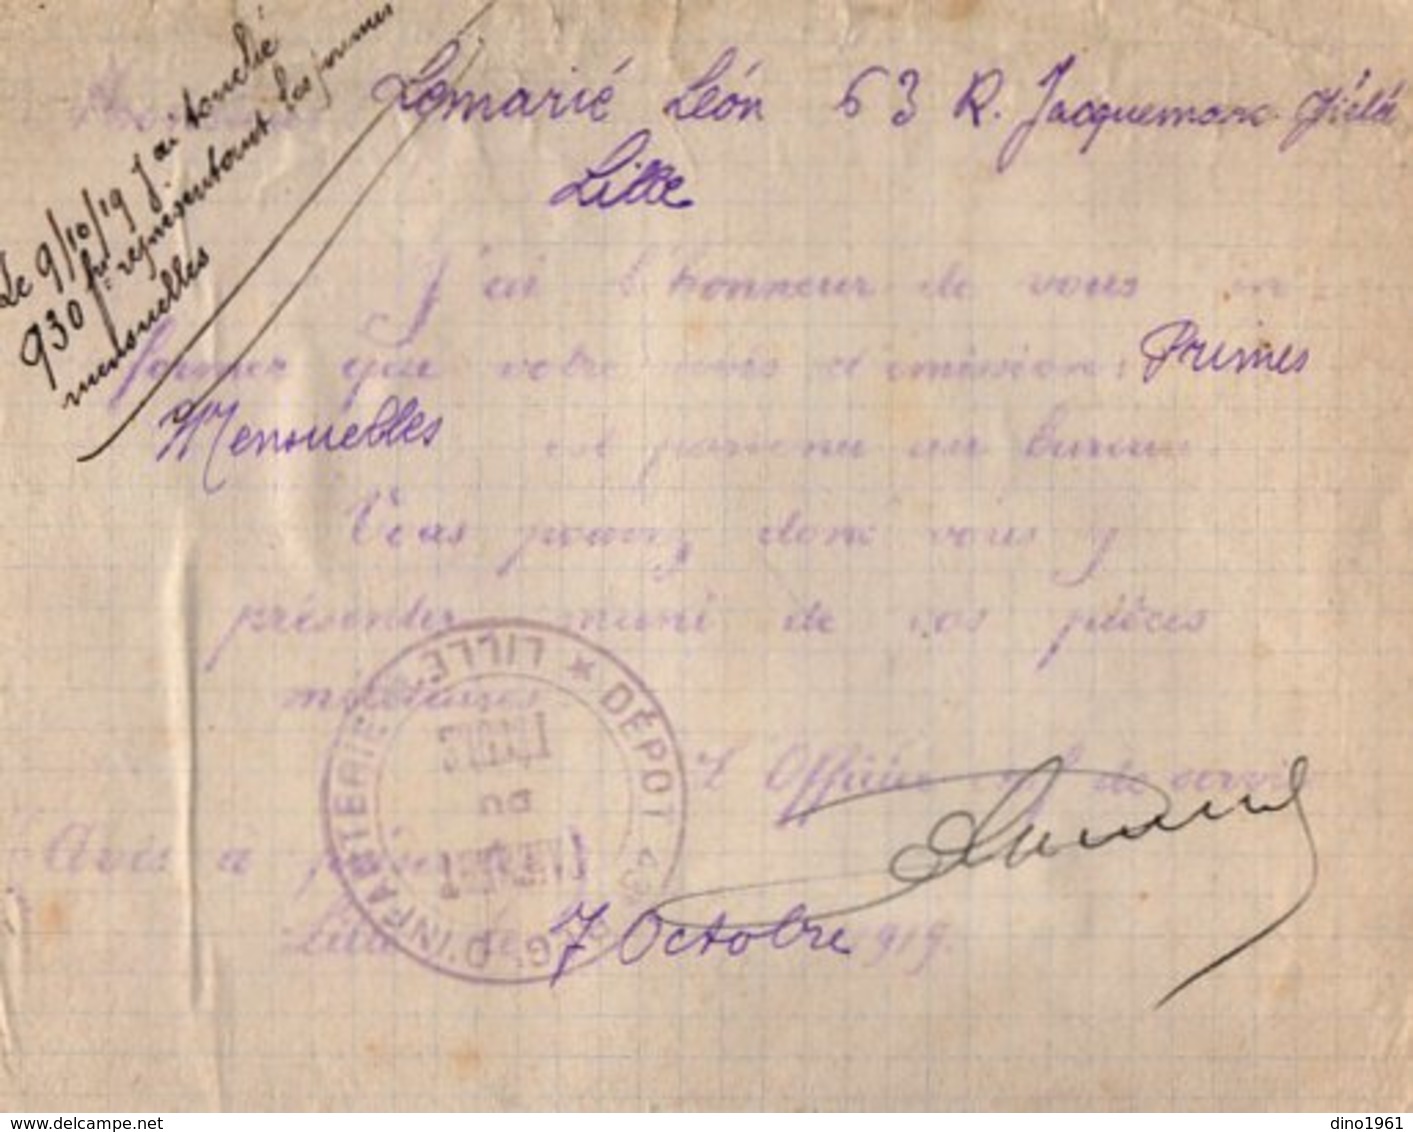 Le 9/10/19 j'ai touché
930 frs représentant les primes
mensuelles
Lemarié Léon 63 R. Jacquemars Giélé
Lille
J'ai l'honneur de vous in-
former que votre avis d'émission: Primes
Mensuelles est parvenu au bureau
Vous pouvez donc vous y
présenter muni de vos pièces
militaires
L'Officier de service
Avis à
Lille le 7 Octobre 1919.
DÉPOT 43 D'INFANTERIE LILLE *
DU
dino1961